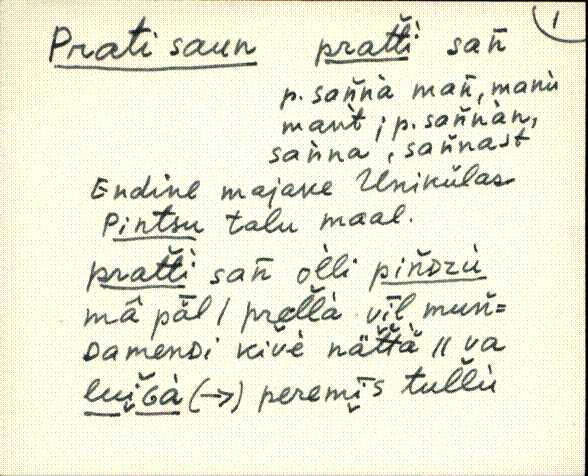 1
Prati saun prat̆t̆ì sañ
p. sañnà mañ, manù
mant ; p. sañnàn,
sànna , sañnast
Endine majake Unikülas
Pintsu talu maal.
prat̆t̆ì sañ òlli piñDzù
mâ pāl / prel̆l̆à vīl muñ=
Damendi kivè nät̆t̆à // va
luiGà (→) peremīs tul̆l̆ù